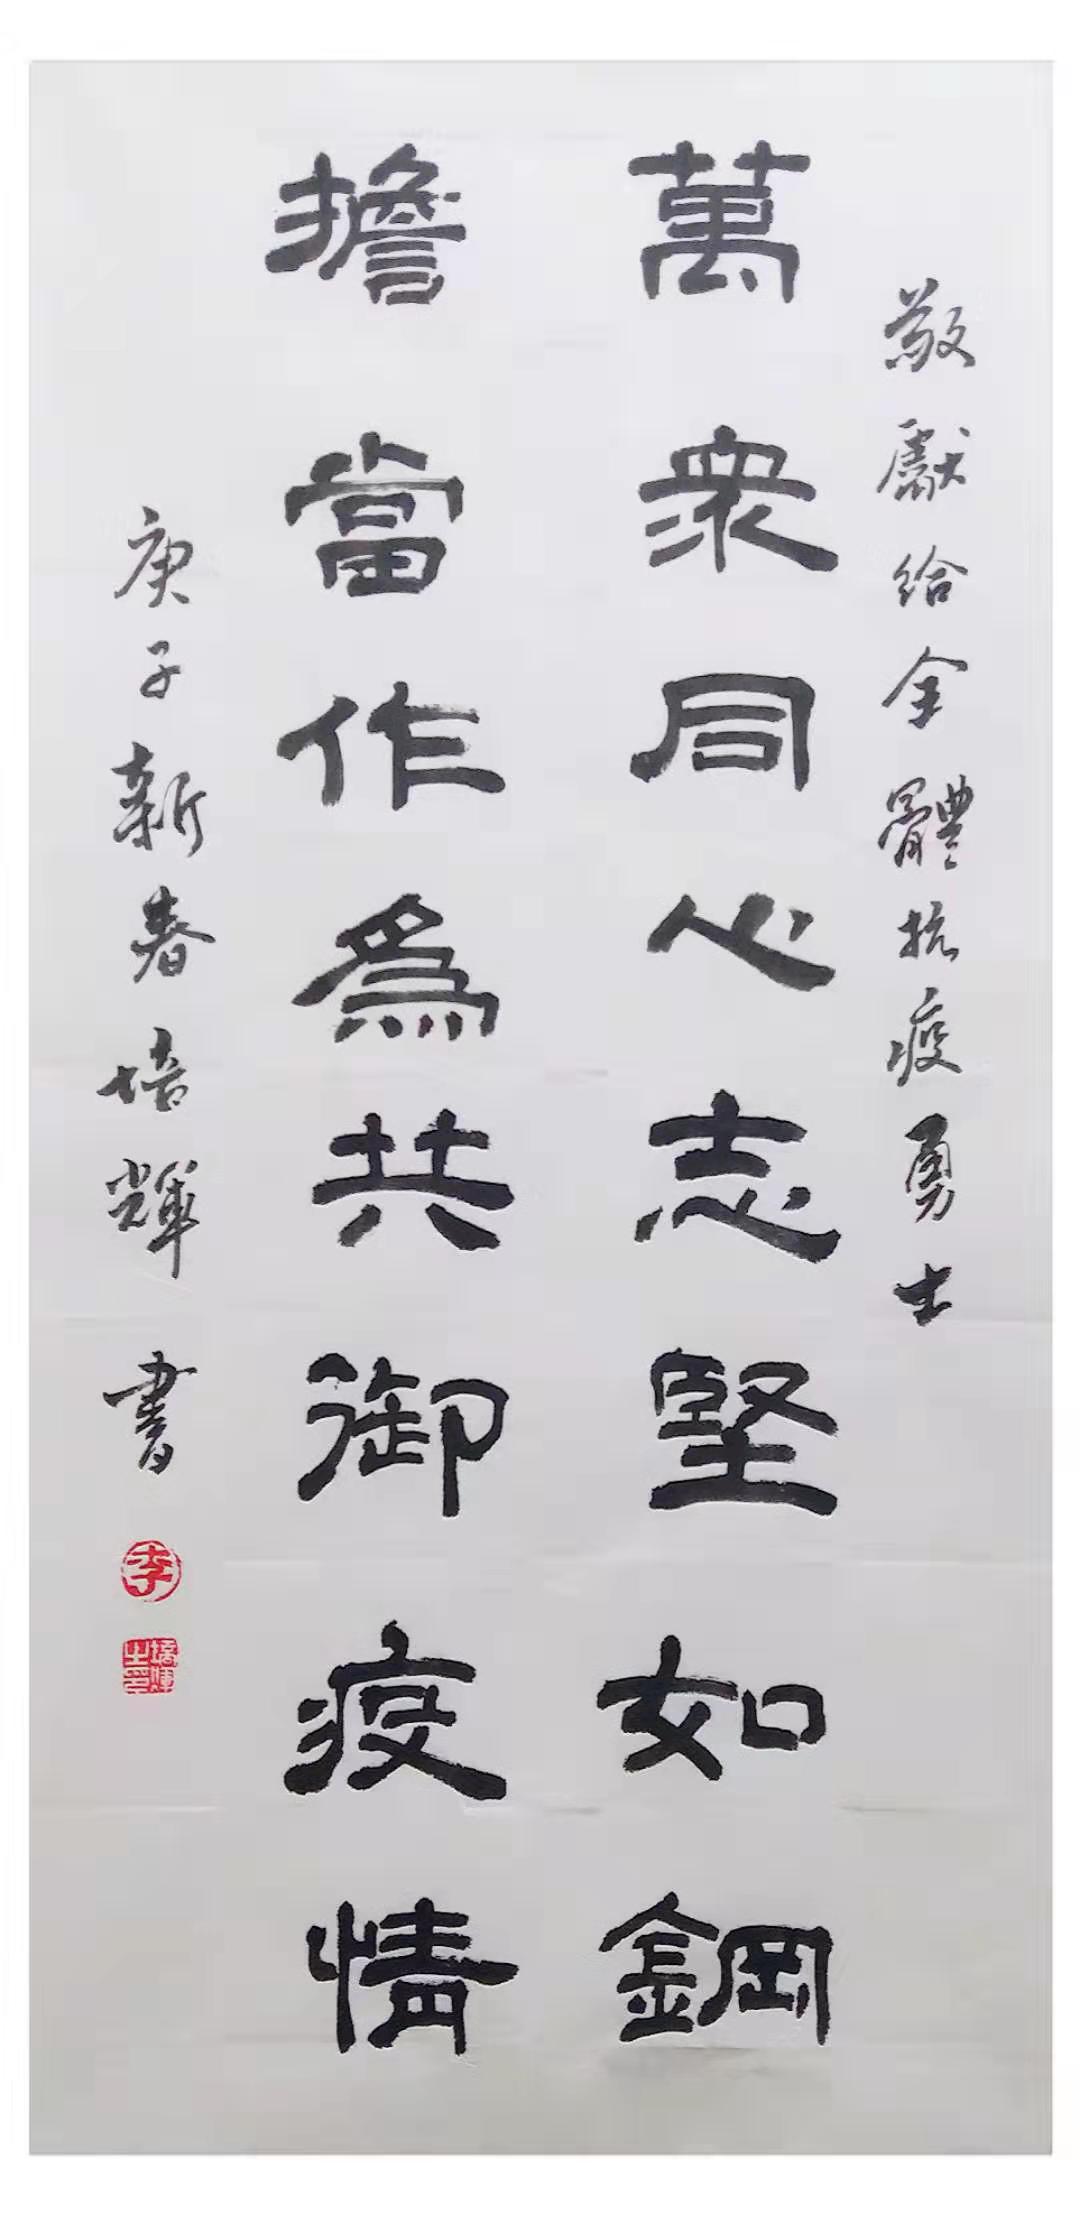 敬獻給全體抗疫勇士
萬衆同心志堅如鋼
擔當作為共御疫情
庚子新春培輝書
李
培輝之印